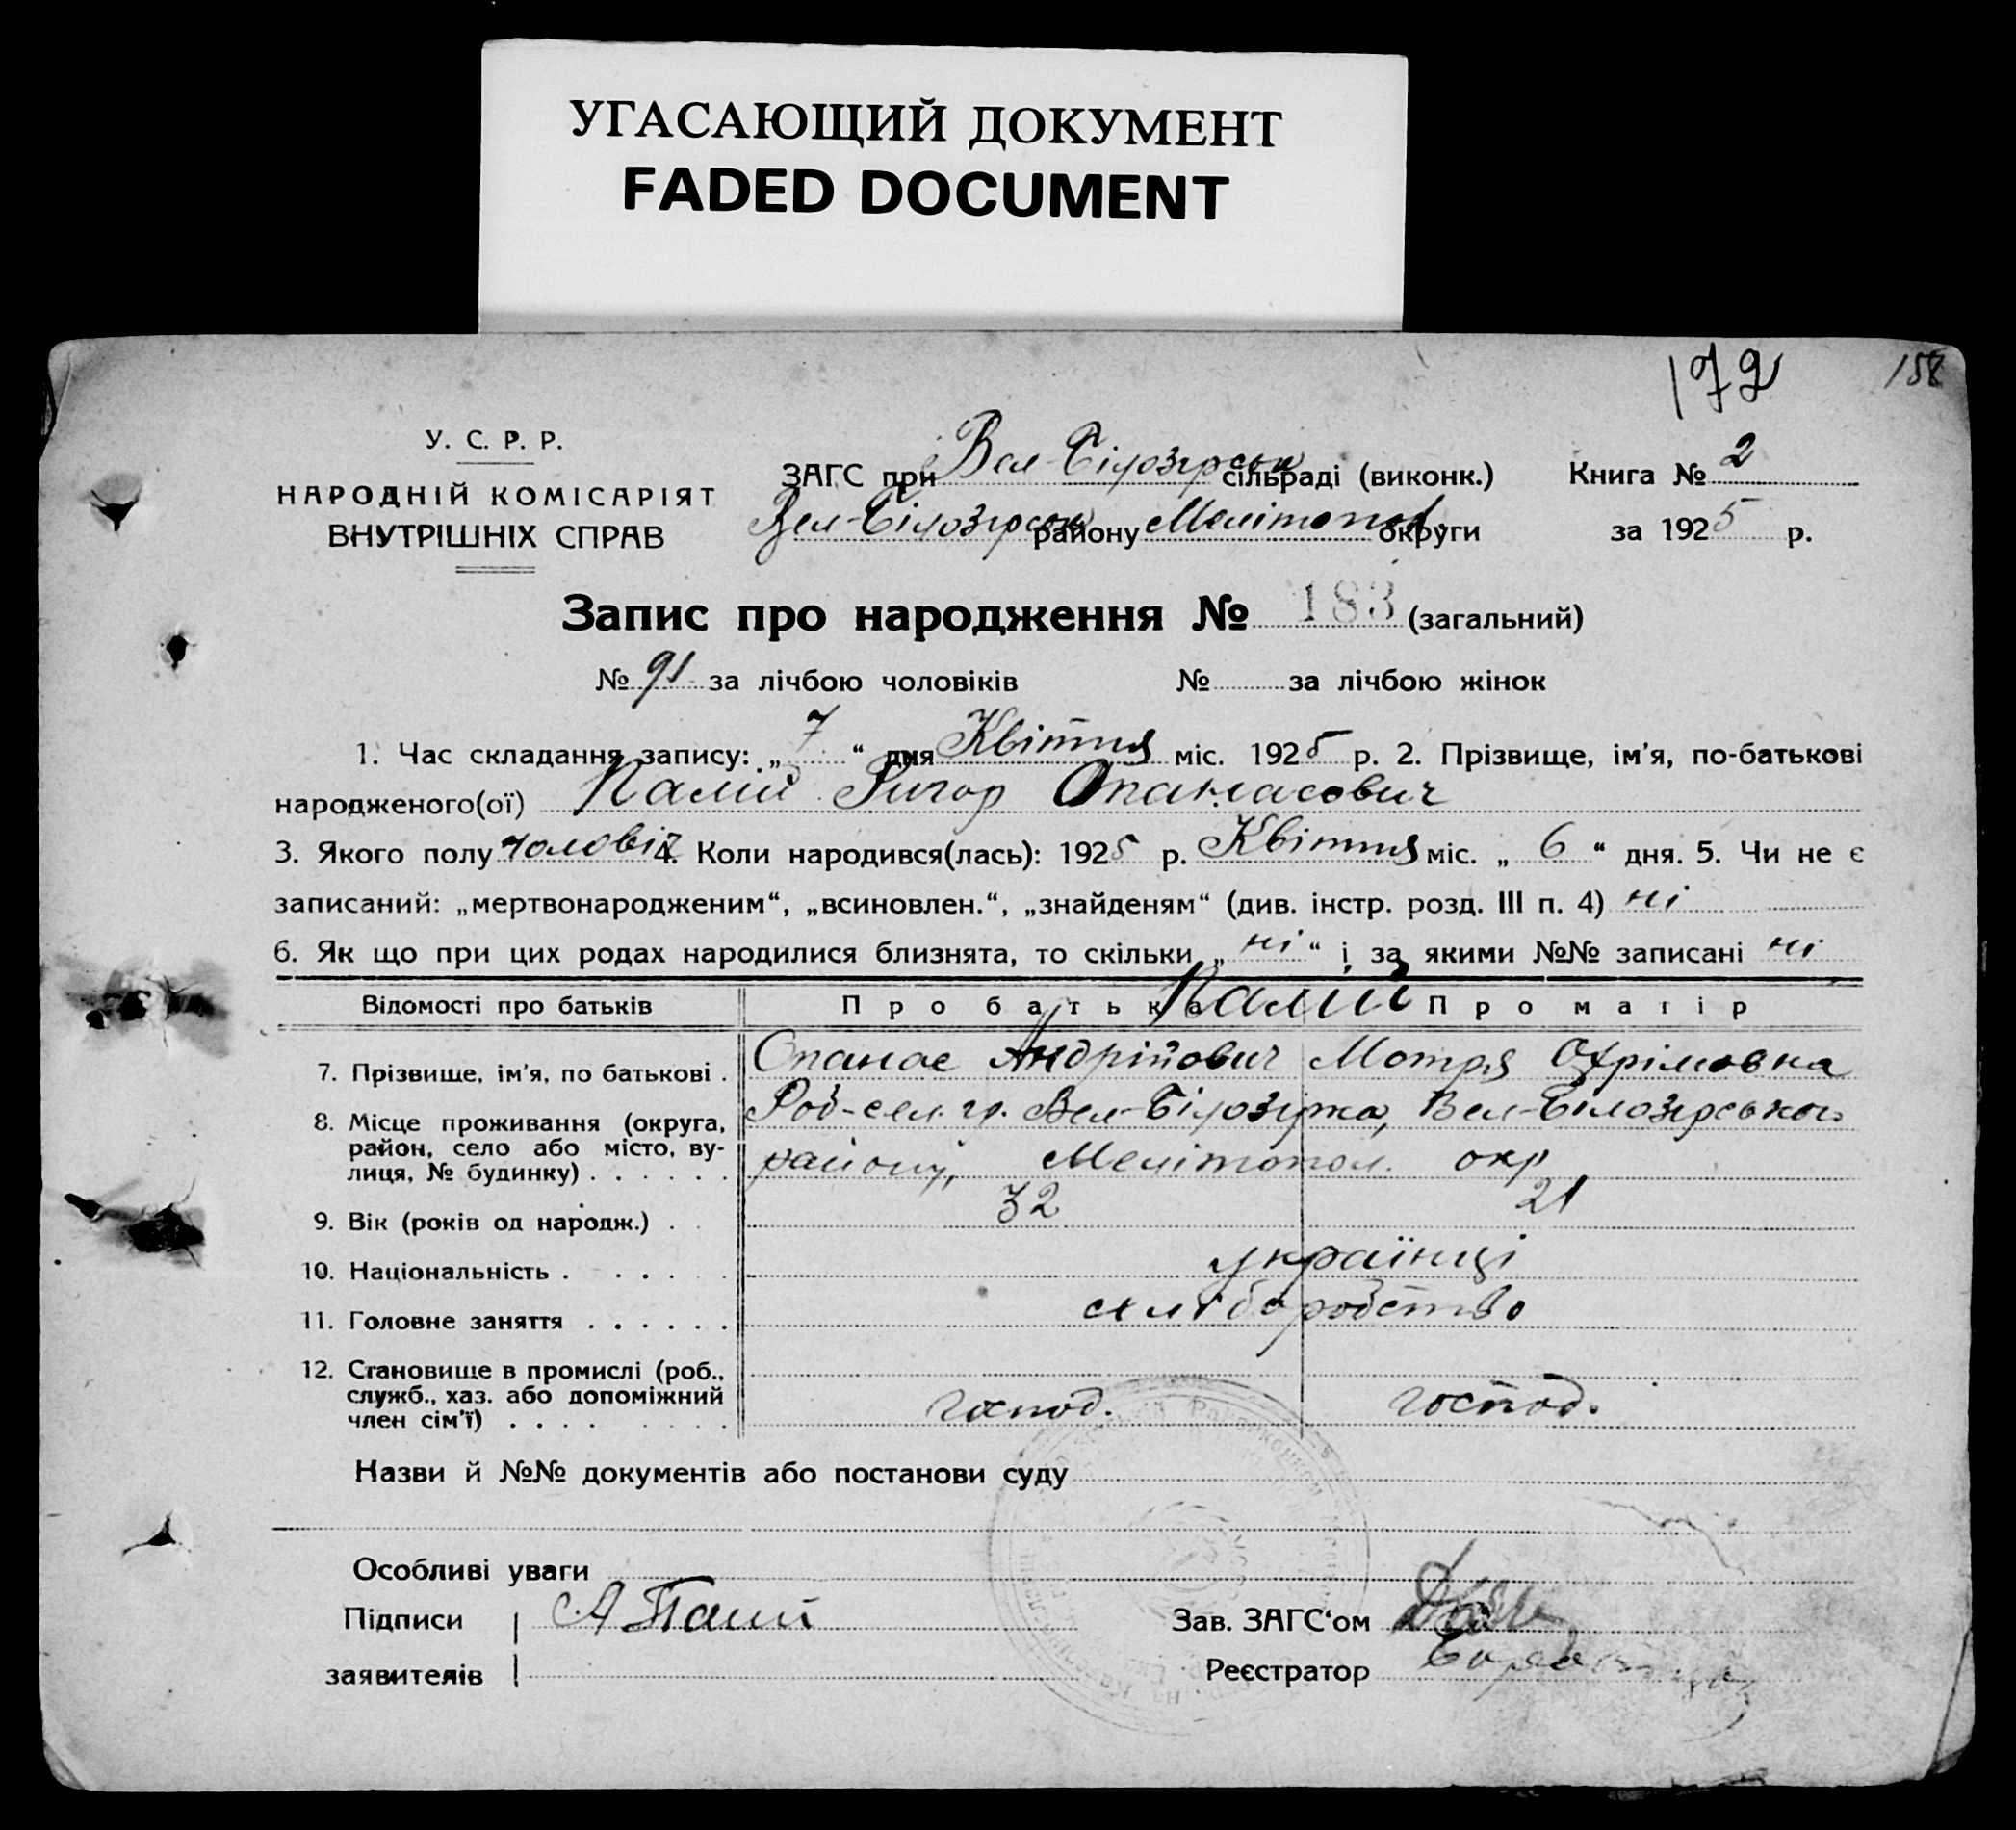 УГАСАЮЩИЙ ДОКУМЕНТ
FADED DOCUMENT
172 158
У. С. Р. Р.
НАРОДНІЙ КОМІСАРІЯТ
ВНУТРІШНІХ СПРАВ
ЗАГС при Вел-Білозірськ сільраді (виконк.) Книга № 2
Вел-Білозірськ району Мелітопол. округи за 1925 р.
Запис про народження № 183 (загальний)
№ 91 за лічбою чоловіків № за лічбою жінок
1. Час складання запису: „7“ дня Квітня міс. 1925 р. 2. Прізвище, ім'я, по-батькові
народженого(ої) Палій Григор Опанасович
3. Якого полу чоловіч 4. Коли народився(лась): 1925 р. Квітня міс. „6“ дня. 5. Чи не є
записаний: „мертвонародженим“, „всиновлен.“, „знайденям“ (див. інстр. розд. III п. 4) ні
6. Як що при цих родах народилися близнята, то скільки „ні“ і за якими №№ записані ні
Відомості про батьків Про батька Палій Про матір
7. Прізвище, ім'я, по батькові . Опанас Андрійович Мотря Охрімовна
8. Місце проживання (округа, район, село або місто, вулиця, № будинку) . . . . . . Вел-Білозірка, Вел-Білозірського
району, Мелітопол. окр
9. Вік (років од народж.) . . 32 21
10. Національність . . . . . . українці
11. Головне заняття . . . . . . хліборобство
12. Становище в промислі (роб., служб., хаз. або допоміжний член сім'ї) . . . . господ. господ.
Назви й №№ документів або постанови суду
Особливі уваги
Підписи заявителів А Палій
Зав. ЗАГС‘ом
Реєстратор